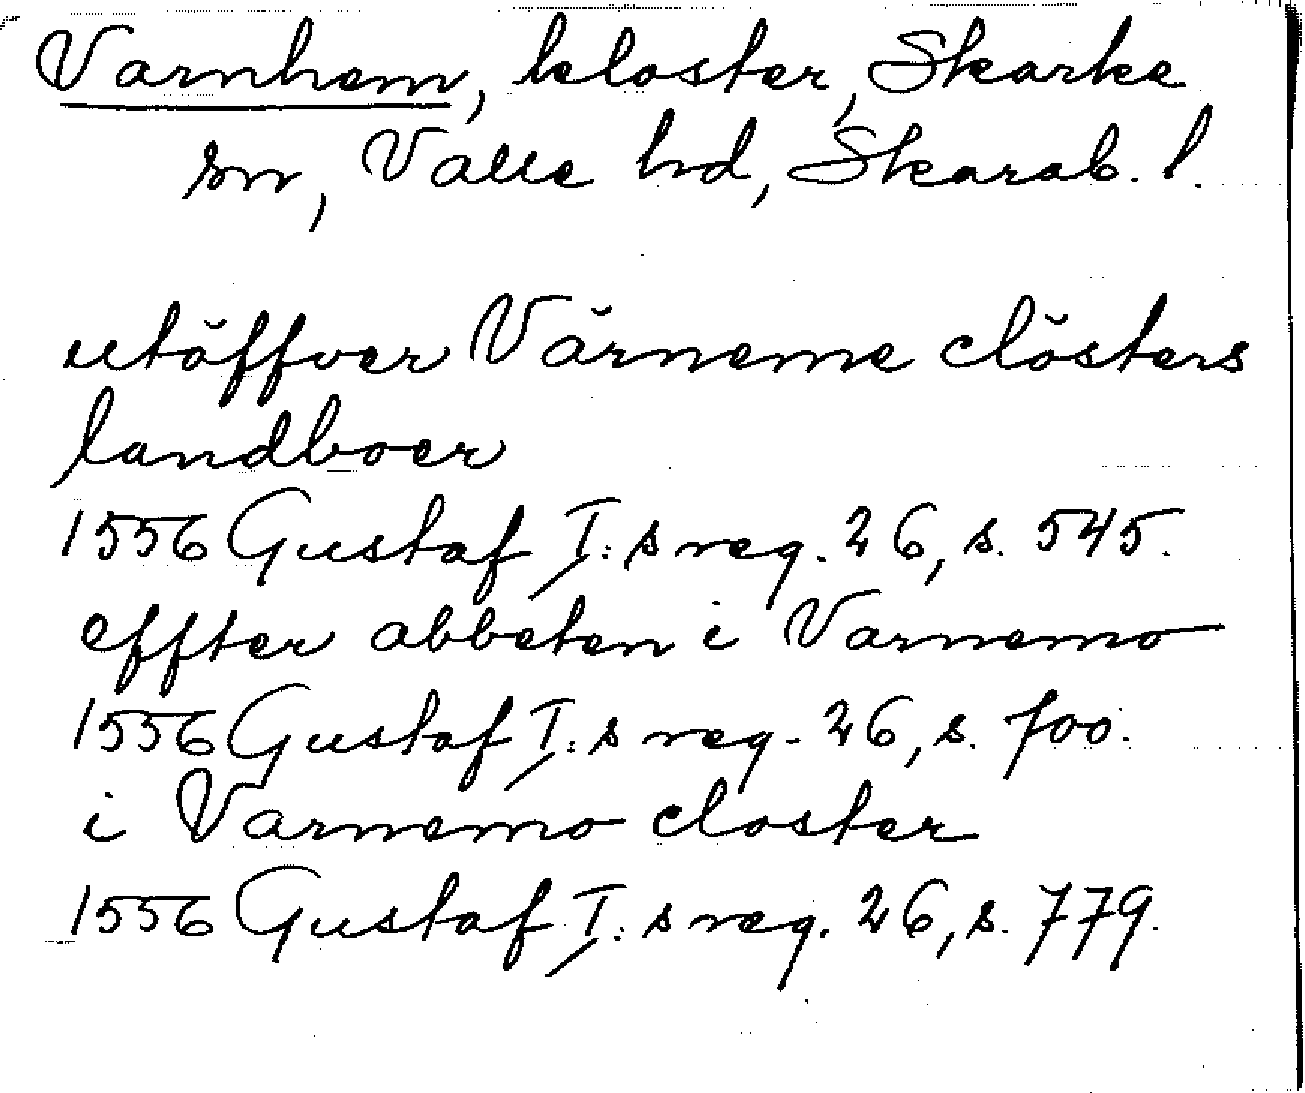 Varnhem, kloster, Skarke
sn, Valle hd, Skarab. l.
utöffver Värneme clösters
landboer
1556 Gustaf I:s reg. 26, s. 545.
effter abbeten i Varnemo
1556 Gustaf I:s reg. 26, s. 700.
i Varnemo closter
1556 Gustaf I:s reg. 26, s. 779.